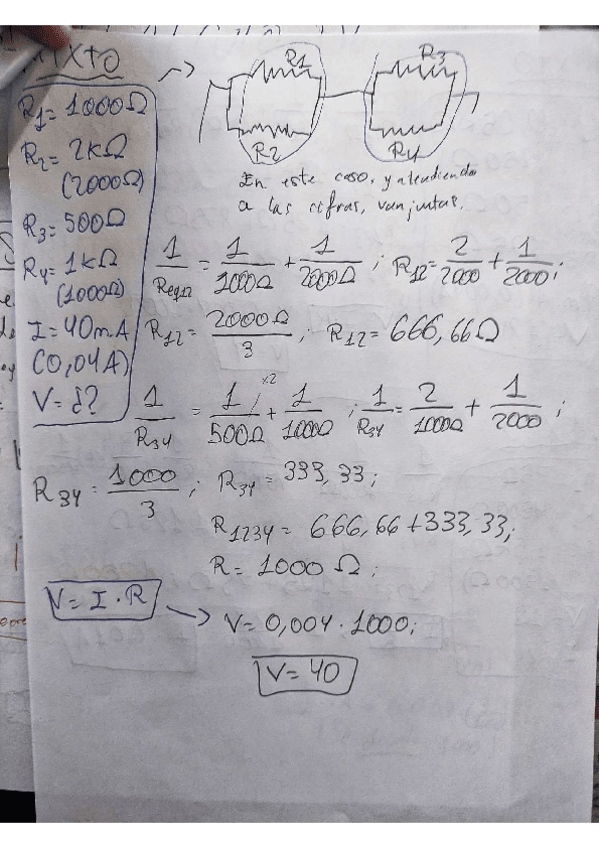 MIXTO
R1 R3
R2 R4
R1= 1000Ω
R2= 2KΩ
(2000Ω)
R3= 500Ω
R4= 1KΩ
(1000Ω)
I= 40mA
(0,04A)
V= ¿?
En este caso, y atendiendo
a las cifras, van juntas.
1/Req12 = 1/1000Ω + 1/2000Ω ; R12= 2/2000 + 1/2000;
R12= 2000Ω/3 ; R12= 666,66Ω
1/R34 = 1/500Ω x2 + 1/1000Ω ; 1/R34= 2/1000Ω + 1/2000 ;
R34= 1000/3 ; R34= 333,33;
R1234= 666,66+333,33;
R= 1000Ω;
V= I·R → V= 0,004·1000;
V= 40